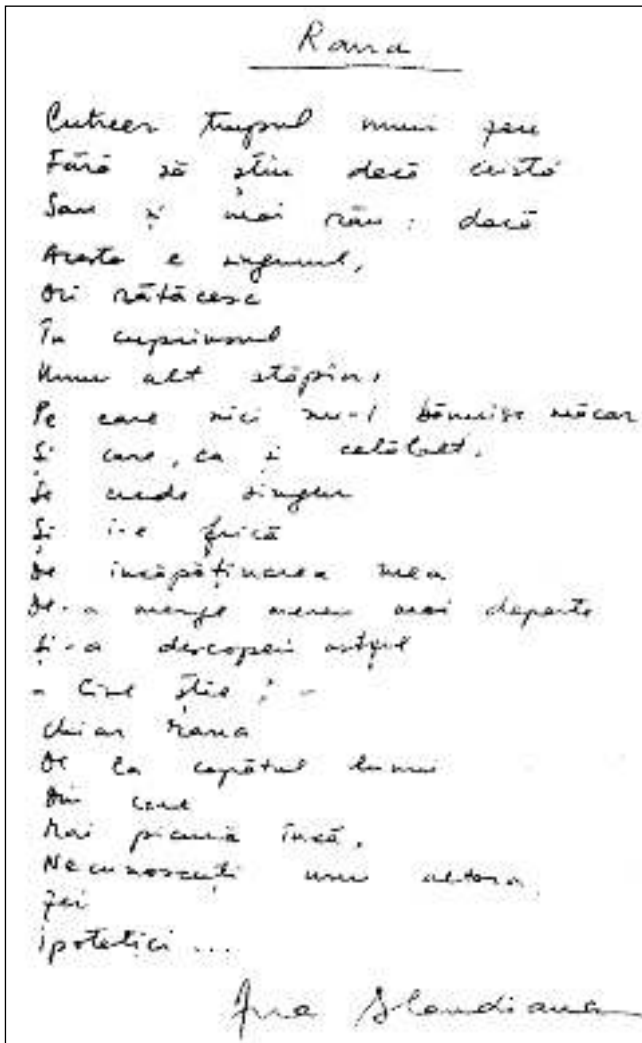 Rana
Cutreer trupul unui zeu
Fără să știu dacă există
Sau și mai rău: dacă
Acesta e singurul,
Ori rătăcesc
În cuprinsul
Unui alt stăpîn,
Pe care nici nu-l bănuise măcar
Și care, ca și celălalt,
Se crede singur
Și i-e frică
De încăpățînarea mea
De-a merge mereu mai departe
Și-a descoperi astfel
- Cine știe? -
Chiar rana
De la capătul lumii
Din care
Mai picură încă,
Necunoscuți unu altora,
Zei
Ipotetici ...
Ana Blandiana